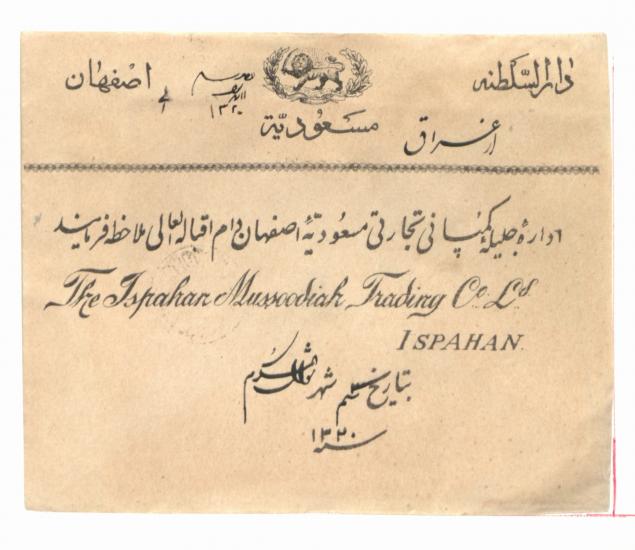 دارالسلطنه اصفهان
۱۳۲۰
مسعودیّة
از عراق
اداره جلیلهٔ کمپانی تجارتی مسعودیّهٔ اصفهان دام اقباله العالی ملاحظه فرمایند
The Ispahan Mussoodiah Trading Co. Ld.
ISPAHAN.
بتاریخ شهر شوال المکرم
سنه ۱۳۲۰